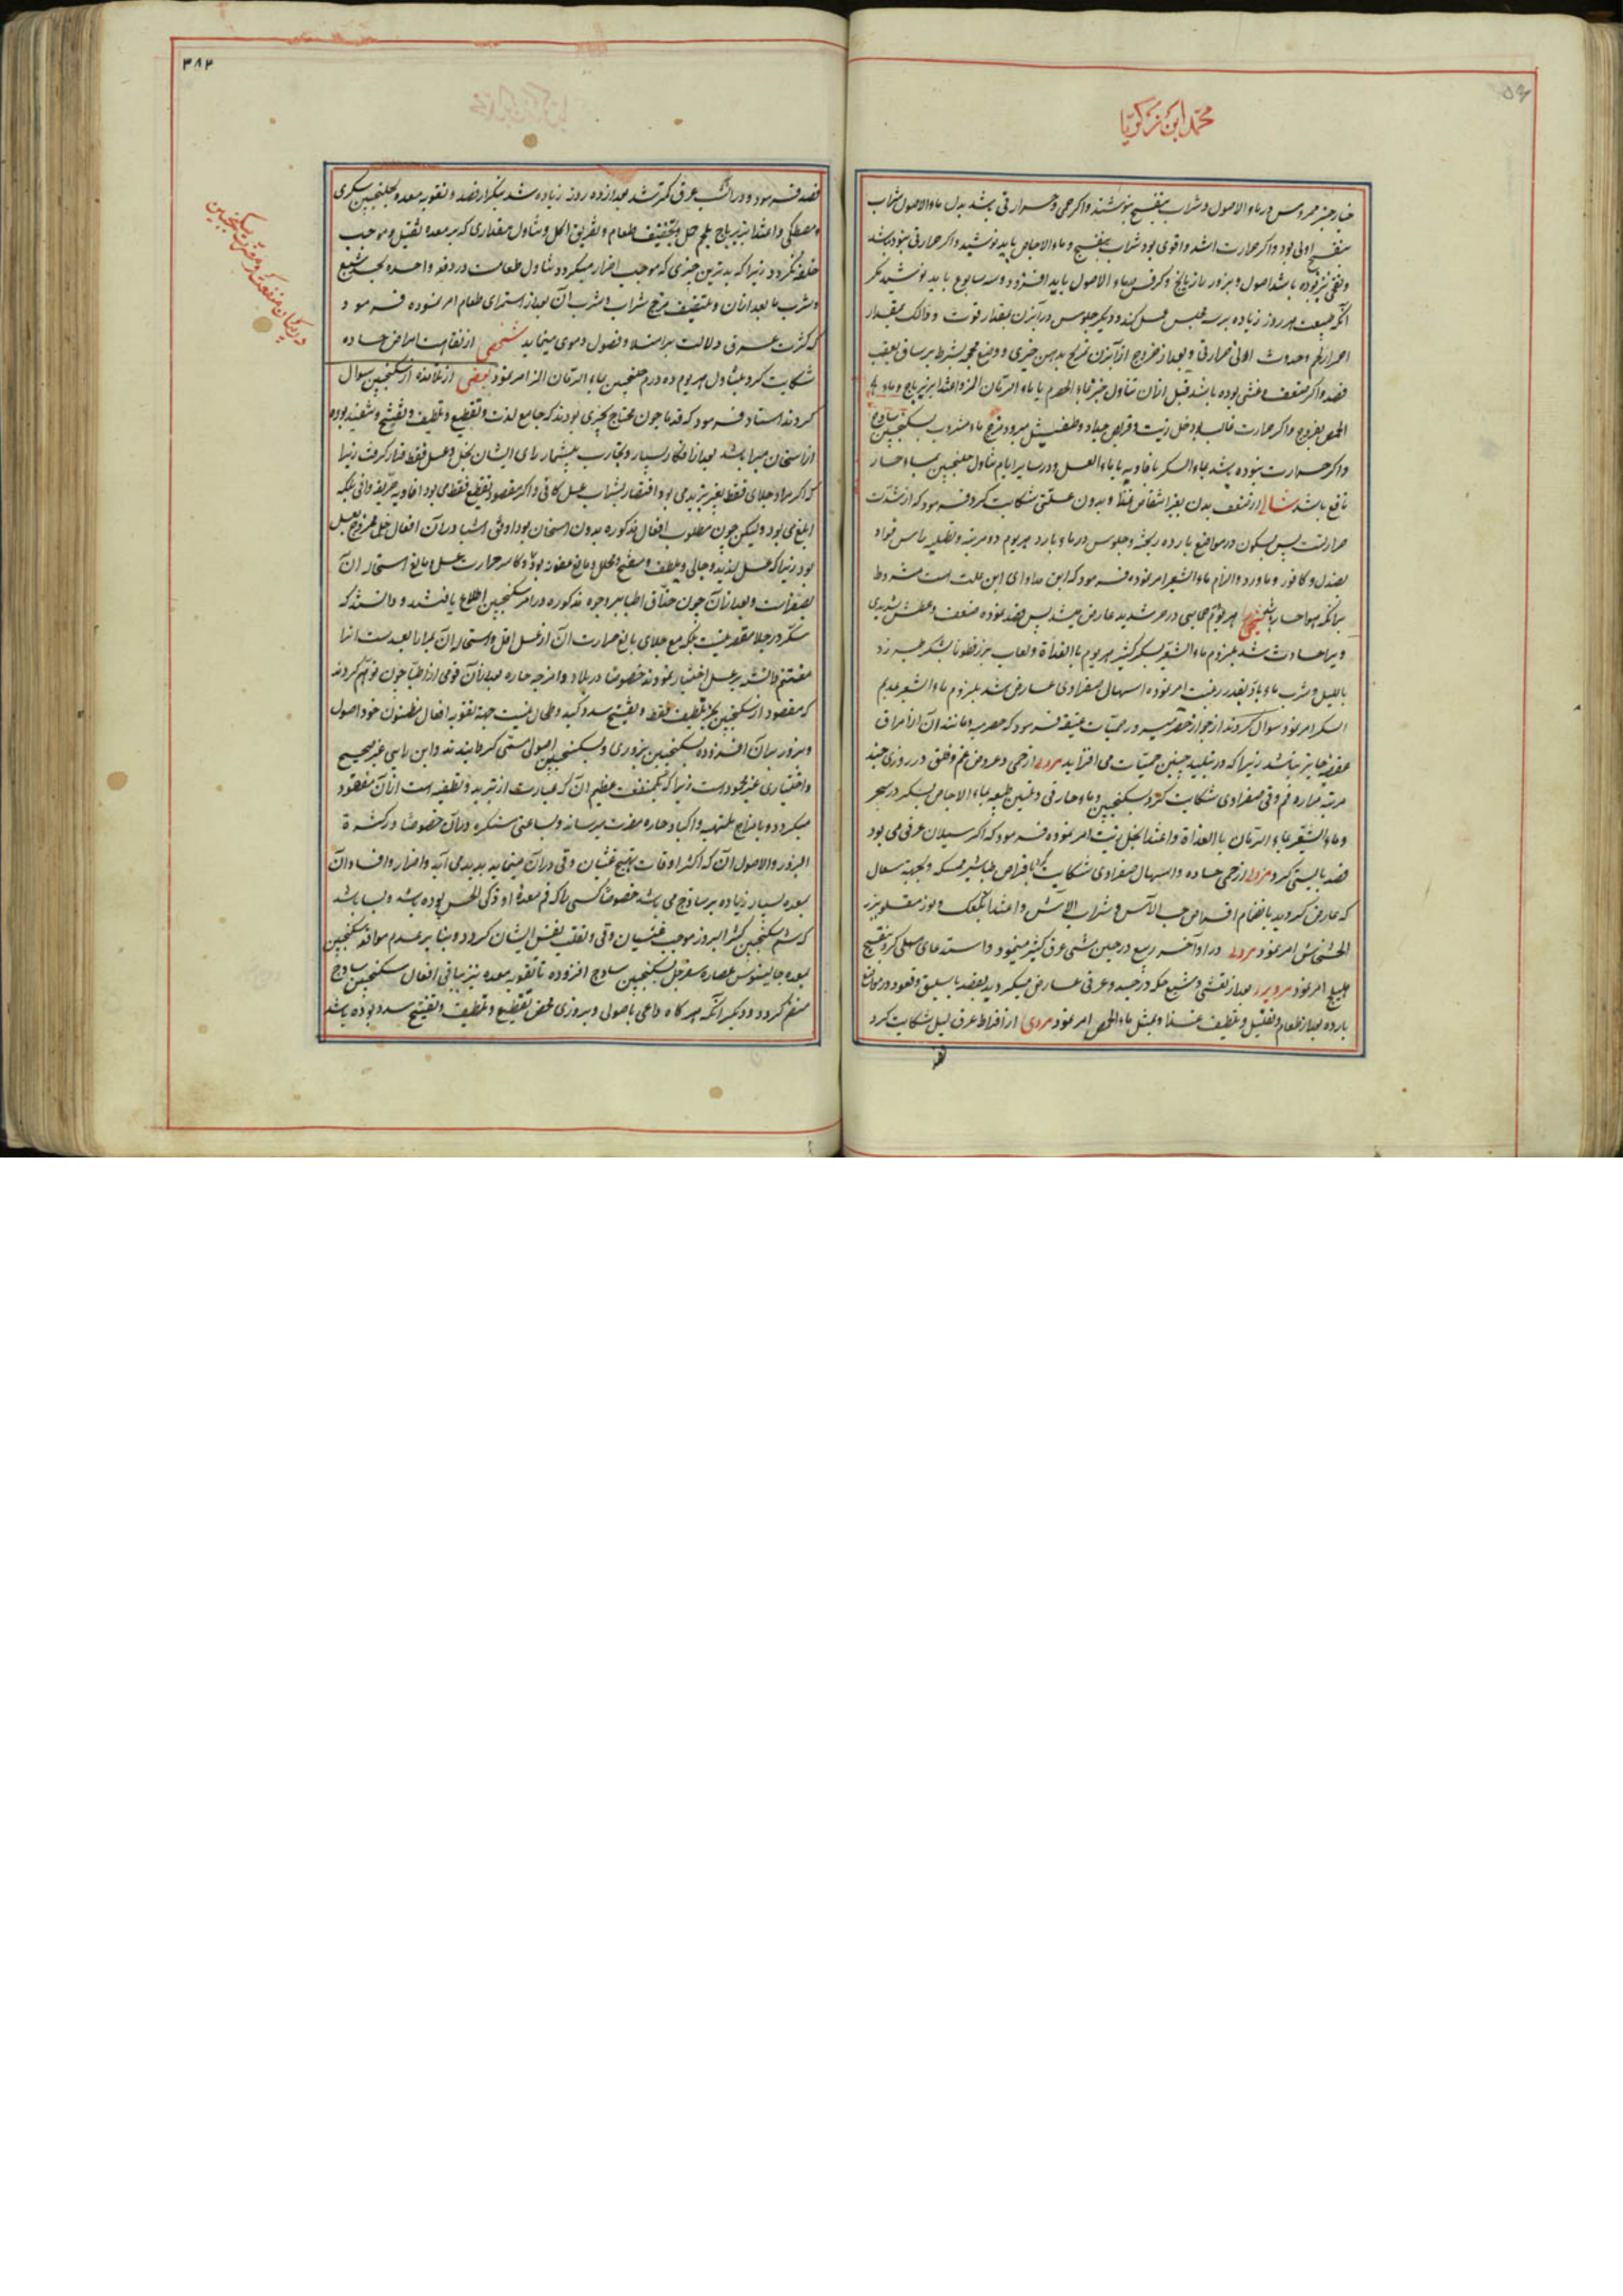 محمد ابن زکریا
خیار چنبر ممروس در ماء الاصول و شراب بنفسج بنوشند و اگر حمی و حرارتی باشد بدل ماء الاصول شراب
بنفسج اولی بود و اگر حرارت اشد و اقوی بود شراب بنفسج و ماء الاجاص باید نوشید و اگر حرارتی نبود باشد
باشد اصول و بزور رازیانج و کرفس بماء الاصول باید افزود و سه سابوع باید نوشید مگر
آنکه طبیعت هر روز زیاده بر سه مجلس عمل کند و دیگر جلوس در آبزن بمقدار قوت و دلک بمقدار
احمرار لحم و حدوث ادنی حرارتی و بعد از خروج از آبزن تمریخ بدهن خیری و وضع محجمه بشرط بر ساق بعقب
فصد و اگر ضعف و غشی بوده باشد قبل از آن تناول خبز بماء الحصرم یا ماء الرمان المز و اغتذا بزیرباج و ماء
الحمص بفروج و اگر حرارت غالب بود خل زیت و قریص و طفشیل و مزج ماء مشروب بسکنجبین ساذج
و اگر حرارت نبوده باشد بماء السکر یا فاویه یا بماء العسل و در سایر ایام تناول جلنجبین بماء حار
نافع باشد شابی از ضعف بدن بغیر انتقاص غذا و بدون علتی شکایت کرد فرمود که از شدت
حرارتست پس بسکون در مواضع بارده ریحیه و جلوس در ماء بارد هر یوم دو مرتبه و تطلیه راس فواد
بصندل و کافور و ماورد و الزام ماء الشعیر امر نموده فرمود که این مداوای این علت است مشروط
برانکه هوا حار باشد شخصی هر یوم حمایی در حر شدید عارض میشد پس فصد نموده ضعف و عطش شدیدی
ویرا حادث شد بلزوم ماء الشعیر بسکر کثیر هر یوم بالغداة و لعاب بزر قطونا بشکر طبرزد
باللیل و شرب ماء بارد بقدر رغبت امر نموده اسهال صفراوی عارض شد بلزوم ماء الشعیر عدیم
السکر امر نمود سوال کردند از جواز خضر در حمیات عتیقه فرمود که حصرمیه و مانند آن الا مراق
عفونیه جایز نباشد زیرا که در تبلید چنین حمیات می افزاید مردی از حمی و عروض غم و قلق در روزی چند
مرتبه و مرارۀ فم و قی صفراوی شکایت کرد بسکنجبین و ماء حار قی و تلیین طبیعه بماء الاجاص بسکر در سحر
و ماء الشعیر بماء الرمان بالغداة و اغتذا بخل زیت امر نموده فرمود که اگر سیلان عرقی می بود
فصد بایستی کرد مردی از حمی حاده و اسهال صفراوی شکایت باقراص طباشیر ممسکه و بجهة سعال
که عارض گردید بانضمام اقراص حب الآس و شراب الآس و اغتذا بکعک و لوز مقلو ببزر
الخشخاش امر نمود مردی در اواخر ربیع در حین مشی عرق کثیر مینمود و استدعای مسهلی کرد بنقیع
هلیلج امر نمود مرد بعد از تعشی و شبع حکه در جسد و عرقی عارض میگردید بفصد باسلیق و قعود در مواضع
بارده بعد از طعام و تقلیل و تلطیف غذا و بمثل ماء الحصرم امر نمود مردی از افراط عرق لیل شکایت کرد
۳۸۲
فصد فرمود و در انشب عرق کمتر شد بعد از ده روز زیاده شد بتکرار فصد و تقویه معده بجلنجبین سکری
و مصطکی و اغتذا بزیرباج و تخفیف طعام و تفریق اکل و تناول مقداری که بر معده ثقیل و موجب
نگردد زیرا که بدترین چیزی که موجب اضرار میگردد تناول طعامست در دفعه واحده بحد شبع
و شرب ما بعد از آن و بتخفیف مزج شراب و شرب آن بعد از استمرای طعام امر نموده فرمود
که کثرت عرق دلالت بر امتلا و فضول دموی مینماید شخصی از نقاهت امراض حاده
شکایت کرد بتناول هر یوم ده درم جلنجبین بماء الرمان المز امر نمود بعضی از تلامذه از سکنجبین سوال
کردند استاد فرمود که قدما چون محتاج بچیزی بودند که جامع لذت و تقطیع و تلطیف و تفتیح و تنفیذ بوده
و از اسخان مبرا باشد بعد از افکار بسیار و تجارب بیشمار رای ایشان بخل و عسل فقط قرار گرفت زیرا
که اگر مراد جلای فقط بغیر تبرید می بود اقتصار بشراب عسل کافی و اگر مقصود تقطیع فقط می بود افاویه حریفه وافی بلکه
ابلغ می بود ولیکن چون مطلوب افعال مذکوره بدون اسخان بود اوفق اشیا در آن افعال خل ممزوج بعسل
بود زیرا که عسل لذیذ و جالی و ملطف و مفتح و محلل و مانع عفونة بود و کاسر حرارت عسل و مانع استحاله آن
بصفراست و بعد از آن چون حذاق اطبا بر وجوه مذکوره در امر سکنجبین اطلاع یافتند و دانستند که
سکر در جلا مقصر نیست بلکه مع جلای بالغ حرارت آن از عسل اقل و استحاله آن بمرار ابعدست انرا
مغتنم دانسته بر عسل اختیار نمودند خصوصا در بلاد و امزجه حاره بعد از آن قومی از اطبا چون توهم کردند
که مقصود از سکنجبین بجز تلطیف فقط و تفتیح سدد کبد و طحال نیست جهة تقویه افعال مظنون خود اصول
و بزور بر آن افزوده بسکنجبین بزوری و سکنجبین اصولی مسمی گردانیدند و این رایی غیر صحیح
و اختیاری غیر محمود است زیرا که یک منفعت عظیم آن که عبارت از تبرید و تطفیه است از آن مفقود
میگردد و بامزاج ملتهبه و اکباد حاره مضرت میرساند و بشاعتی مستکره در آن خصوصا در کثیرة
البزور والاصول آن که اکثر اوقات تهییج غثیان و قی در آن مینماید پدید می آید و اضرار و افساد آن
بمعده بسیار زیاده بر ساذج می باشد خصوصا کسی را که فم معده او ذکی الحس بوده باشد و بسا باشد
که شم سکنجبین کثیر البزور موجب غثیان و قی و تقلب نفس ایشان گردد و بنا بر عدم موافقه سکنجبین
بمعده جالینوس عصاره سفرجل بسکنجبین ساذج افزوده تا تقویه معده نیز بباقی افعال سکنجبین ساذج
منضم گردد و دیگر آنکه هر گاه داعی باصولی و بزوری محض تقطیع و تلطیف و تفتیح سدد بوده باشد